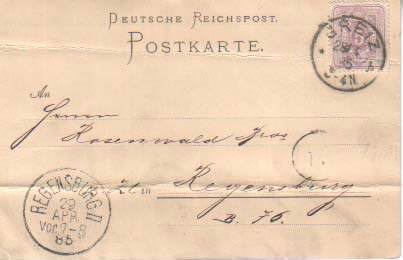 DEUTSCHE REICHSPOST.
POSTKARTE.
GREIZ
28
85
3-4N.
An
Herrn
Rosenwald
in Regensburg
B. 76.
REGENSBURG II
29
APR
VOR. 7-8
85